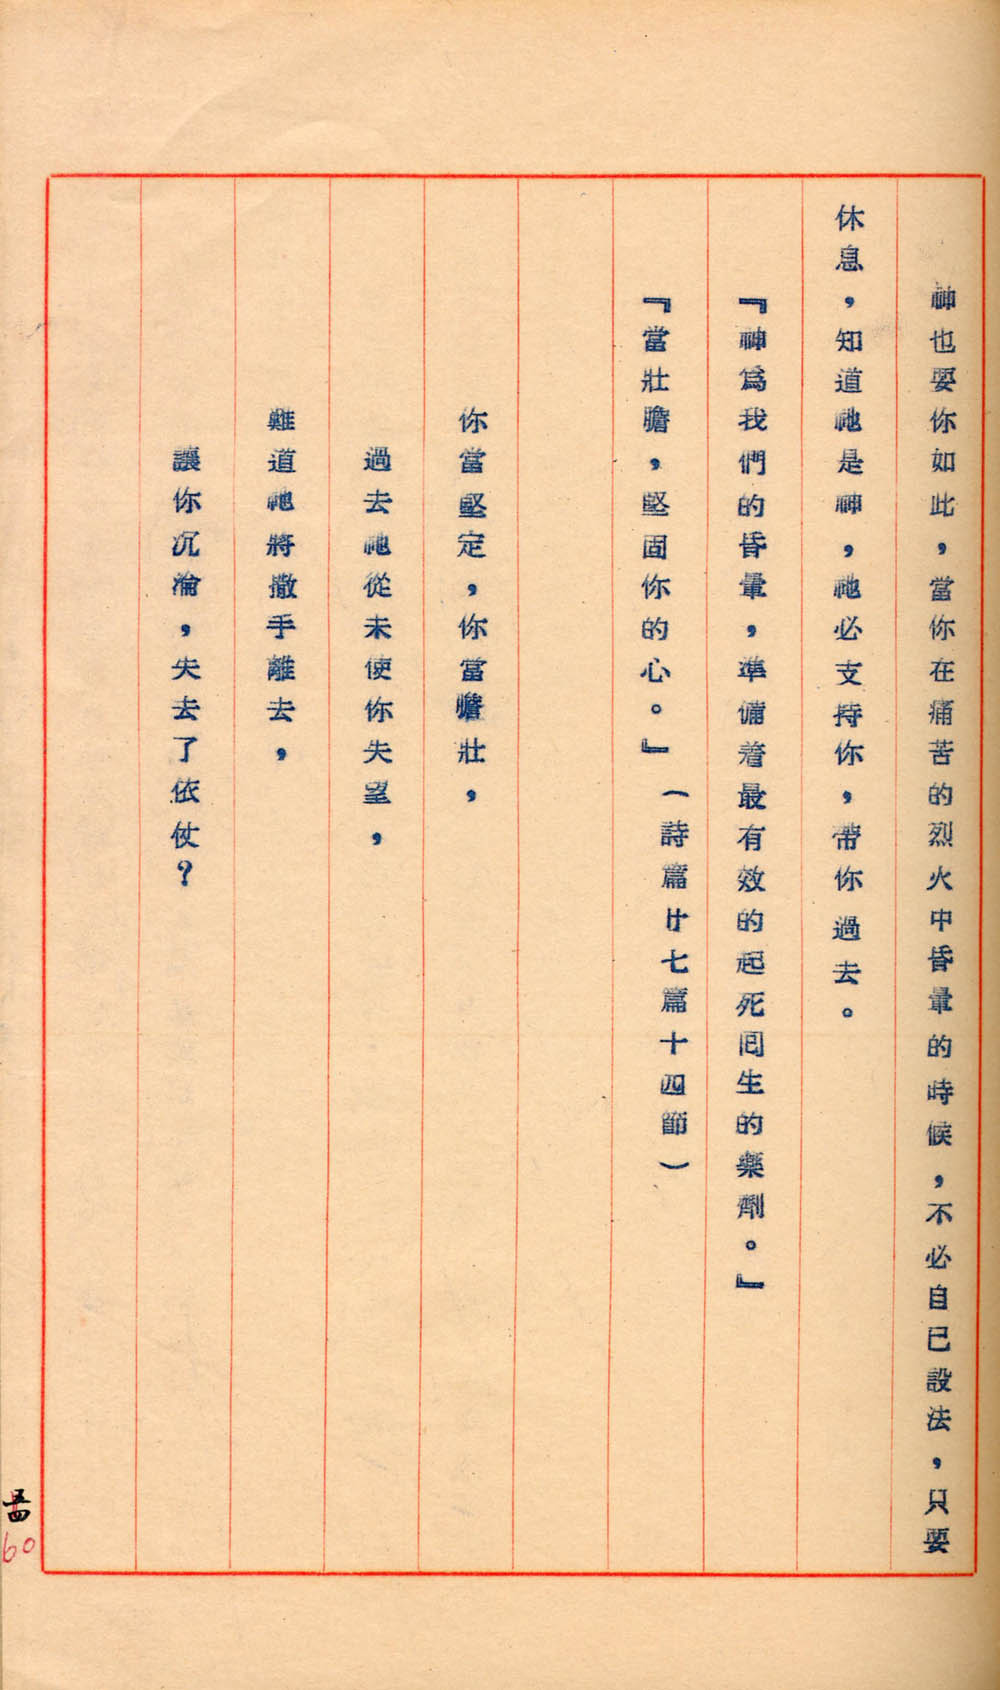 神也要你如此，當你在痛苦的烈火中昏暈的時候，不必自已設法，只要
休息，知道祂是神，祂必支持你，帶你過去。
『神為我們的昏暈，準備着最有效的起死囘生的藥劑。』
『當壯膽，堅固你的心。』（詩篇廿七篇十四節）
你當堅定，你當膽壯，
過去祂從未使你失望，
難道祂將撒手離去，
讓你沉淪，失去了依仗？
60